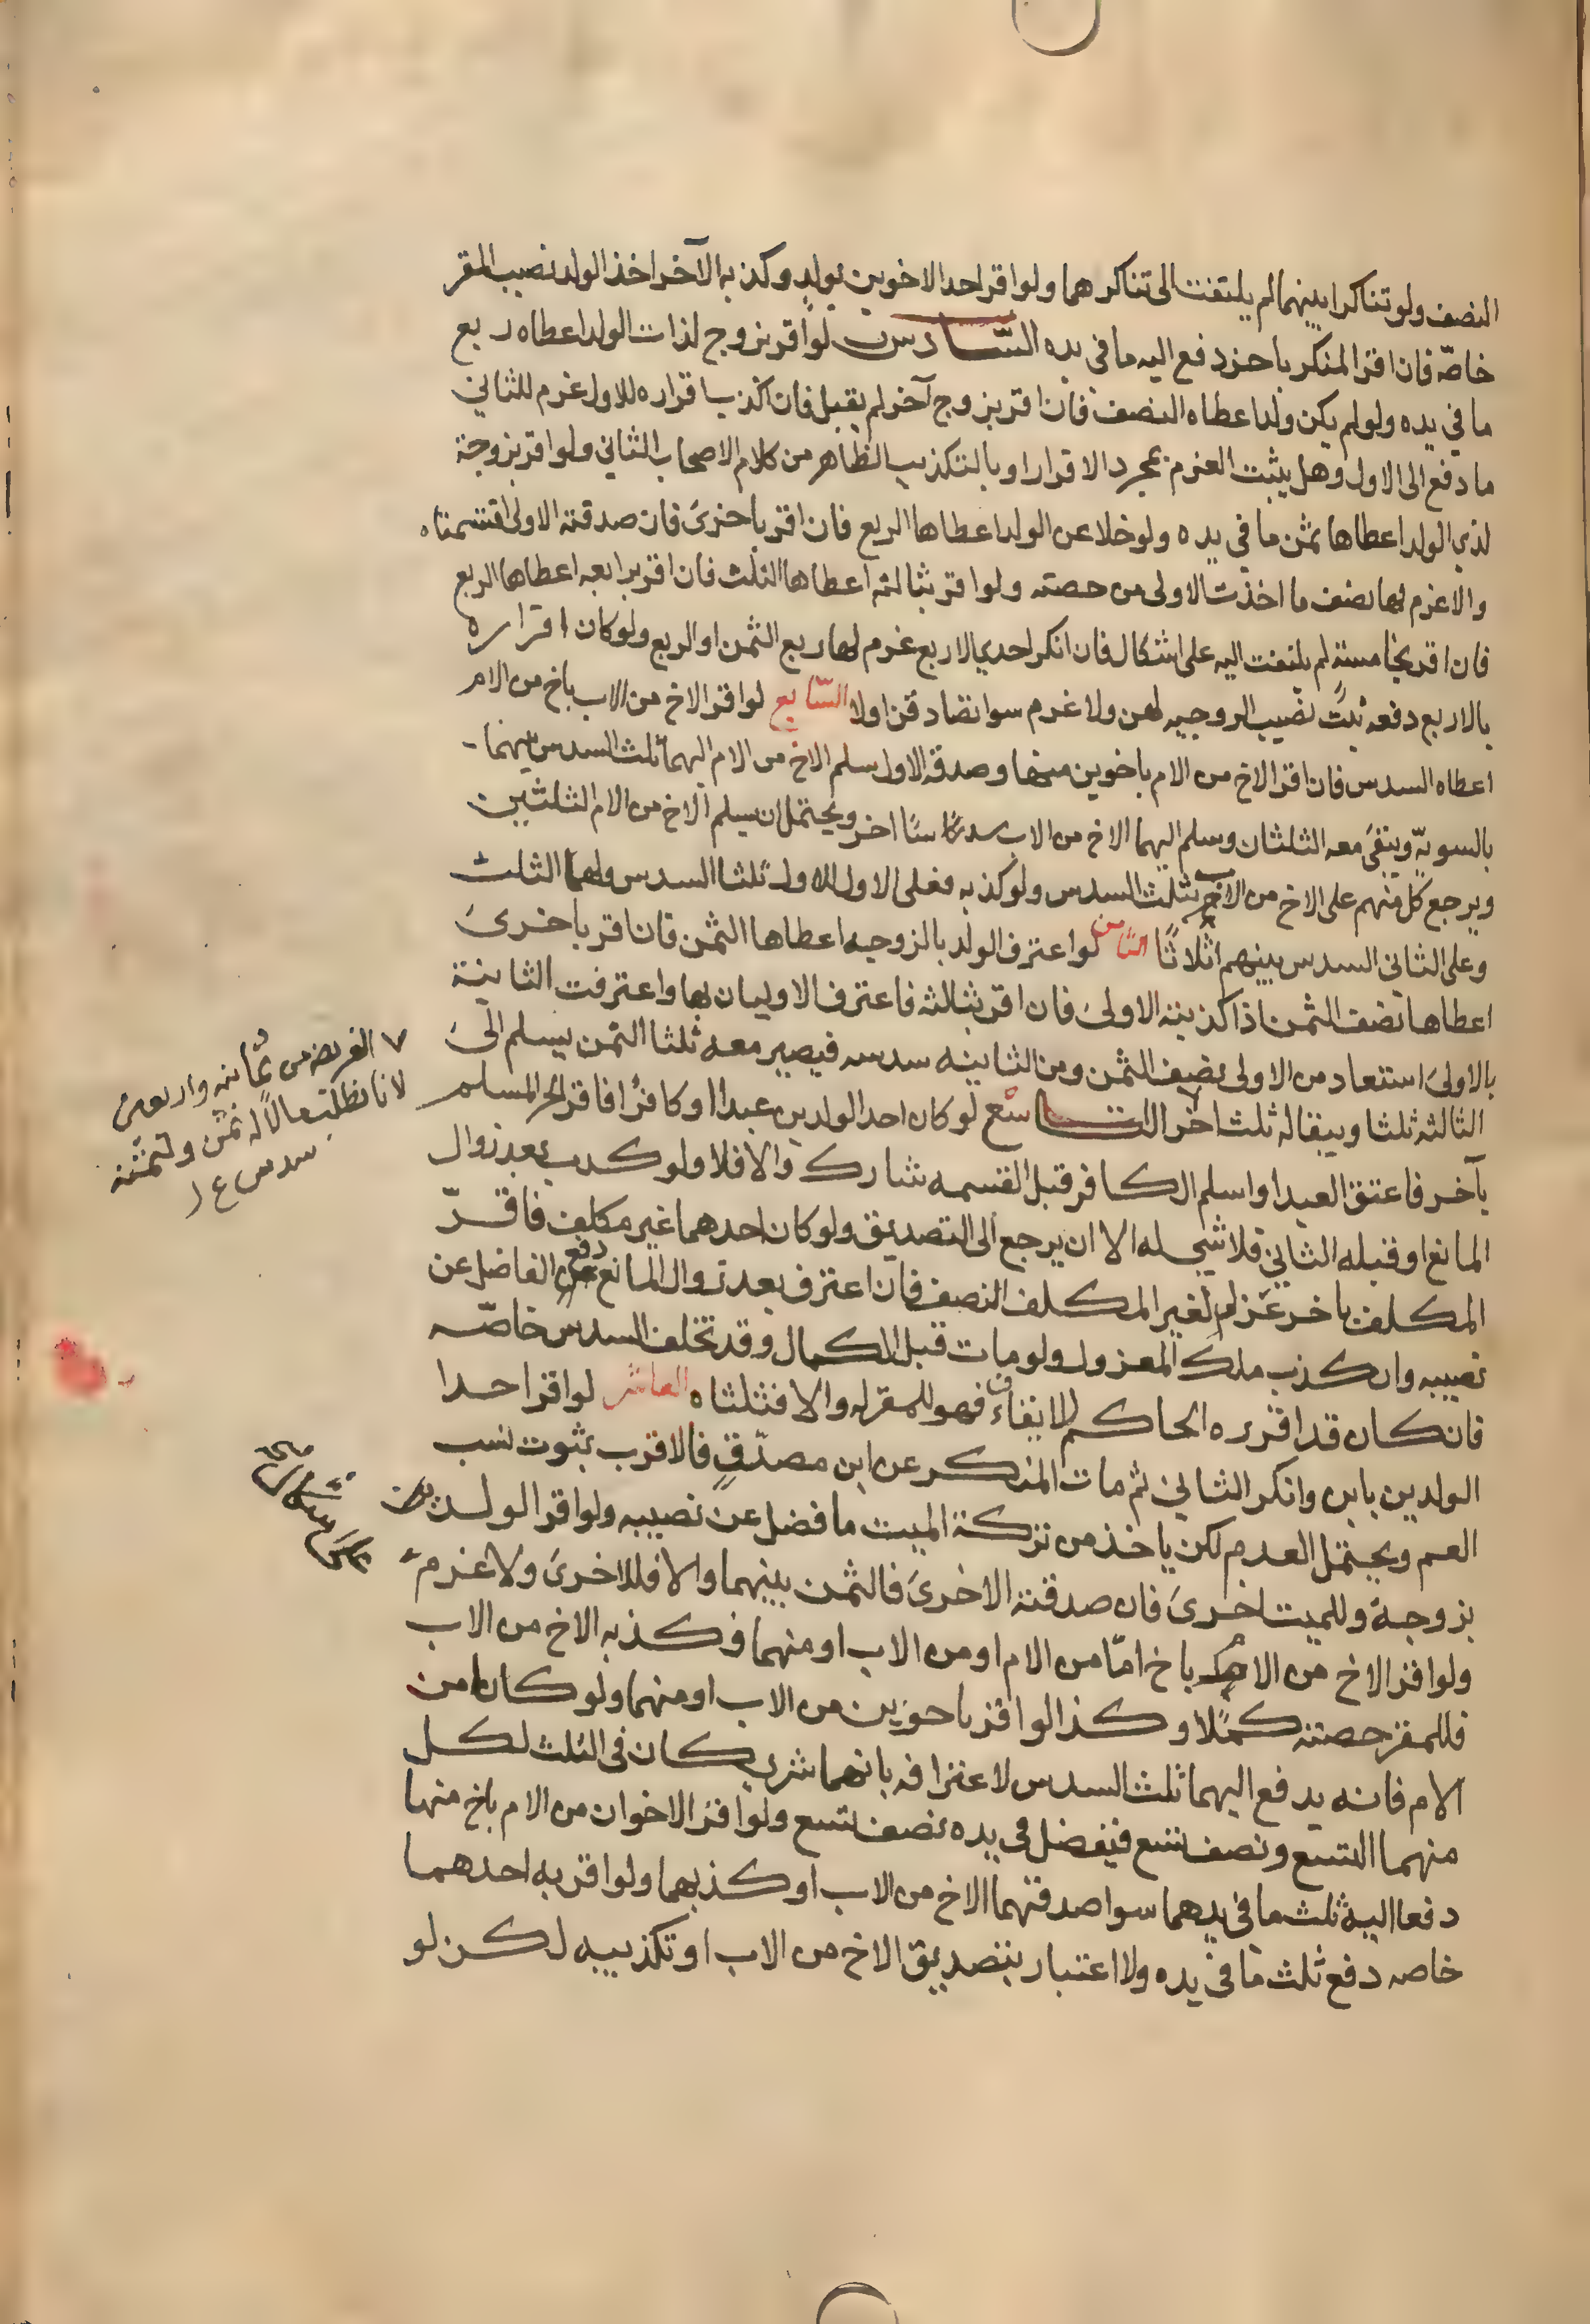 النصف ولو تناكرا بينهما لم يلتفت الى تناكرهما ولو اقر احد الاخوين بولد وكذبه الآخر اخذ الولد نصيب المقر
خاصّة فان اقر المنكر باخر دفع اليه ما في يده السّادس لو اقر بزوج لذات الولد اعطاه ربع
ما في يده ولو لم يكن ولد اعطاه النصف فان اقر بزوج آخر لم يقبل فان اكذب اقراره للاول غرم للثاني
ما دفع الى الاول وهل يثبت الغرم بمجرد الاقرار او بالتكذيب الظاهر من كلام الاصحاب الثاني ولو اقر بزوجة
لذي الولد اعطاها ثمن ما في يده ولو خلا عن الولد اعطاها الربع فان اقر باخرى فان صدقته الاولى اقتسمتاه
والا غرم لها نصف ما اخذت الاولى من حصته ولو اقر بثالثه اعطاها الثلث فان اقر برابعه اعطاها الربع
فان اقر بخامسة لم يلتفت اليه على اشكال فان انكر احدي الاربع غرم لها ربع الثمن او الربع ولو كان اقراره
بالاربع دفعه ثبت نصيب الزوجيه لهن ولا غرم سوا تصادقن اولا السّابع لو اقر الاخ من الاب باخ من الام
اعطاه السدس فان اقر الاخ من الام باخوين منها وصدقه الاول سلم الاخ من الام اليهما ثلث السدس بينهما
بالسويّة ويبقى معه الثلثان وسلم اليهما الاخ من الاب سدسًا اخر ويحتمل ان يسلم الاخ من الام الثلثين
ويرجع كل منهم على الاخ من الاب بثلث السدس ولو كذبه فعلى الاول للاول ثلثا السدس ولهما الثلث
وعلى الثاني السدس بينهم اثلاثًا الثامن لو اعترف الولد بالزوجيه اعطاها الثمن فان اقر باخرى
اعطاها نصف الثمن اذا كذبته الاولى فان اقر بثالثه فاعترف الاوليان بها واعترفت الثانية
بالاولى استعاد من الاولى نصف الثمن ومن الثانيه سدسه فيصير معه ثلثا الثمن يسلم الى
الثالثه ثلثا ويبقا له ثلث اخر التاسع لو كان احد الولدين عبدا او كافرًا فاقر الحر المسلم
بآخر فاعتق العبد او اسلم الكافر قبل القسمه شارك والا فلا ولو كذب بعد زوال
المانع او قبله الثاني فلا شي له الا ان يرجع الى التصديق ولو كان احدهما غير مكلف فاقرّ
المكلف باخر عزل لغير المكلف النصف فان اعترف بعد زوال المانع دفع الفاضل عن
نصيبه وان كذب ملك المعزول ولو مات قبل الكمال وقد تخلف السدس خاصّه
فان كان قد افرزه الحاكم للايقاف فهو للمقر له والا فثلثاه العاشر لو اقر احد
الولدين بابن وانكر الثاني ثم مات المنكر عن ابن مصدّق فالاقرب ثبوت نسب
العم ويحتمل العدم لكن ياخذ من تركة الميت ما فضل عن نصيبه ولو اقر الولد
بزوجة وللميت اخرى فان صدقته الاخرى فالثمن بينهما والا فللاخرى ولا غرم
ولو اقر الاخ من الام باخ امّا من الام او من الاب او منهما فكذبه الاخ من الاب
فللمقر حصته كملا وكذا لو اقر باخوين من الاب او منهما ولو كانا من
الام فانه يدفع اليهما ثلث السدس لاعترافه بانهما شريكان في الثلث لكل
منهما التسع ونصف تسع فيفضل في يده نصف تسع ولو اقر الاخوان من الام باخ منها
دفعا اليه ثلث ما في يدهما سوا صدقهما الاخ من الاب او كذبهما ولو اقر به احدهما
خاصه دفع ثلث ما في يده ولا اعتبار بتصديق الاخ من الاب او تكذيبه لكن لو
٧ الفريضه من ثمانيه واربعين
لانا نطلب مالًا له ثمن ولثمنه
سدس